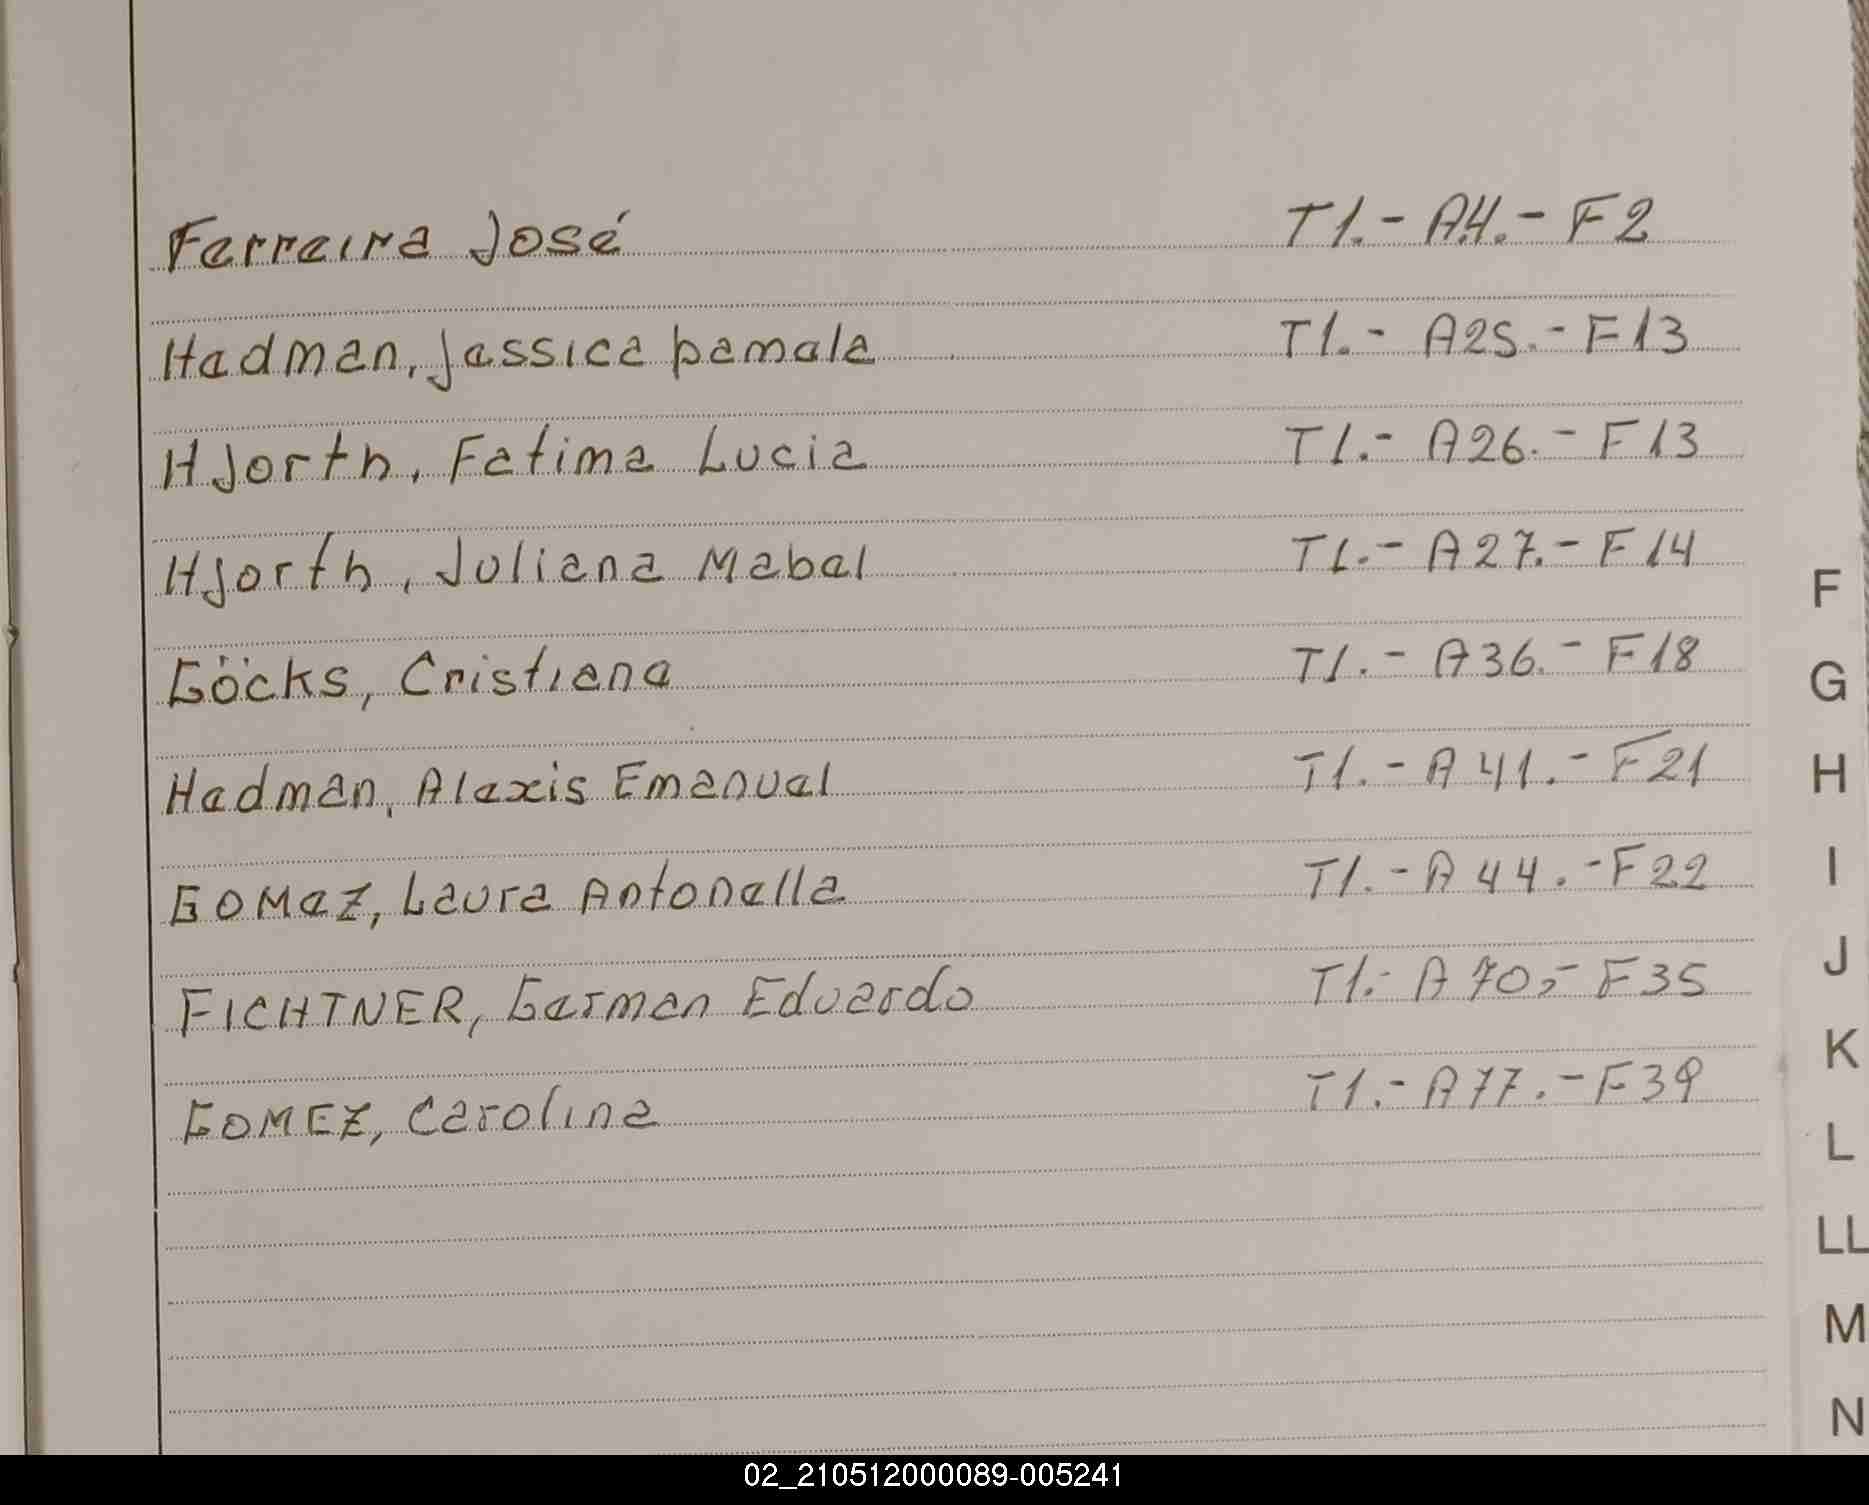 Ferreira José T1.- A4.- F2
Hedman, Jessica pamela T1.- A25.- F13
HJorth, Fatima Lucia T1.- A26.- F13
HJorth, Juliana Mabel T1.- A27.- F14
Göcks, Cristiana T1.- A36.- F18
Hedman, Alexis Emanuel T1.- A41.- F21
GOMeZ, Laura Antonella T1.- A44.- F22
FICHTNER, German Eduardo T1.- A70,- F35
GOMEZ, Carolina T1.- A77.- F39
F
G
H
I
J
K
L
LL
M
N
02_210512000089-005241